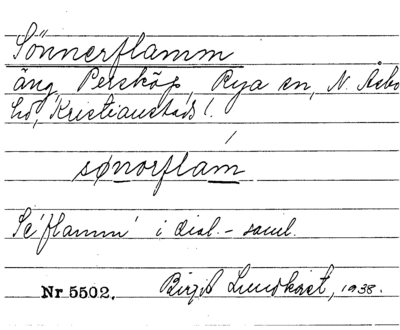 Sönnerflamm
äng, Persköp, Rya sn, N. Åsbo
hd, Kristianstads l.
sønorflam
Se 'flamm' i dial.-saml.
Nr 5502. Birgit Lundkvist, 1938.